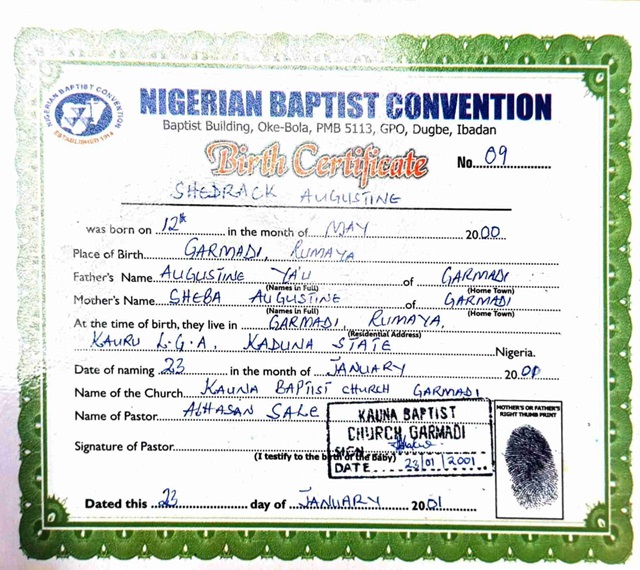 NIGERIAN BAPTIST CONVENTION
ESTABLISHED 1914
NIGERIAN BAPTIST CONVENTION
Baptist Building, Oke-Bola, PMB 5113, GPO, Dugbe, Ibadan
Birth Certificate No. 09
SHEDRACK AUGUSTINE
was born on 12th in the month of MAY 2000
Place of Birth GARMADI, RUMAYA
Father's Name AUGUSTINE YA'U of GARMADI
(Names in Full) (Home Town)
Mother's Name SHEBA AUGUSTINE of GARMADI
(Names in Full) (Home Town)
At the time of birth, they live in GARMADI, RUMAYA,
(Residential Address)
KAURU L.G.A. KADUNA STATE Nigeria.
Date of naming 23 in the month of JANUARY 2001
Name of the Church KAUNA BAPTIST CHURCH GARMADI
Name of Pastor ALHASAN SALE
Signature of Pastor
(I testify to the birth of the baby)
KAUNA BAPTIST
CHURCH, GARMADI
SIGN
DATE 23/01/2001
MOTHER'S OR FATHER'S
RIGHT THUMB PRINT
Dated this 23 day of JANUARY 2001